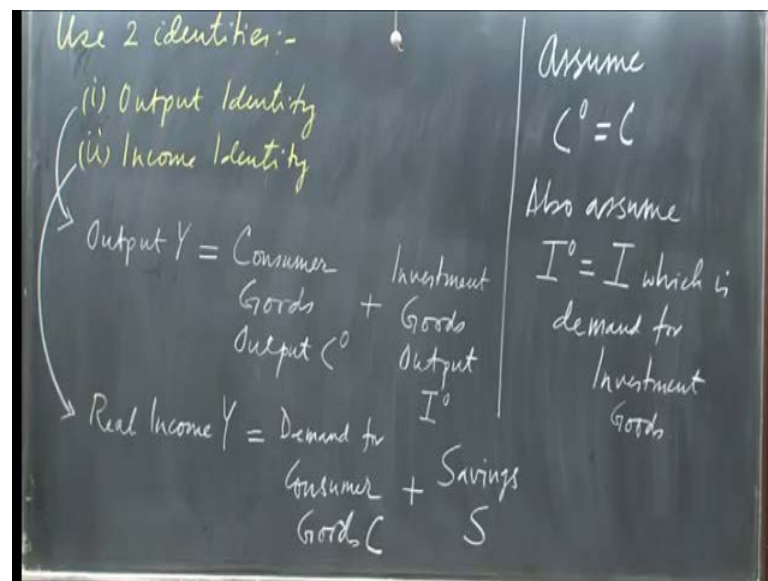 Use 2 identities:-
(i) Output Identity
(ii) Income Identity
Output Y = Consumer Goods Output C⁰ + Investment Goods Output I⁰
Real Income Y = Demand for Consumer Goods C + Savings S
Assume
C⁰ = C
Also assume
I⁰ = I which is
demand for
Investment
Goods